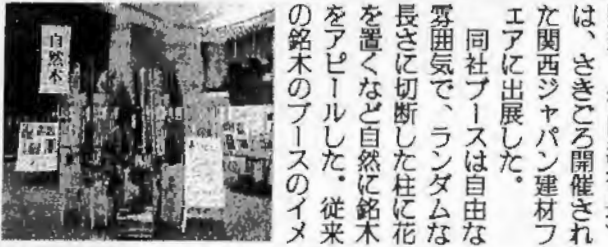 は、さきごろ開催され
た関西ジャパン建材フ
ェアに出展した。
同社ブースは自由な
雰囲気で、ランダムな
長さに切断した柱に花
を置くなど自然に銘木
をアピールした。従来
の銘木のブースのイメ
自然木